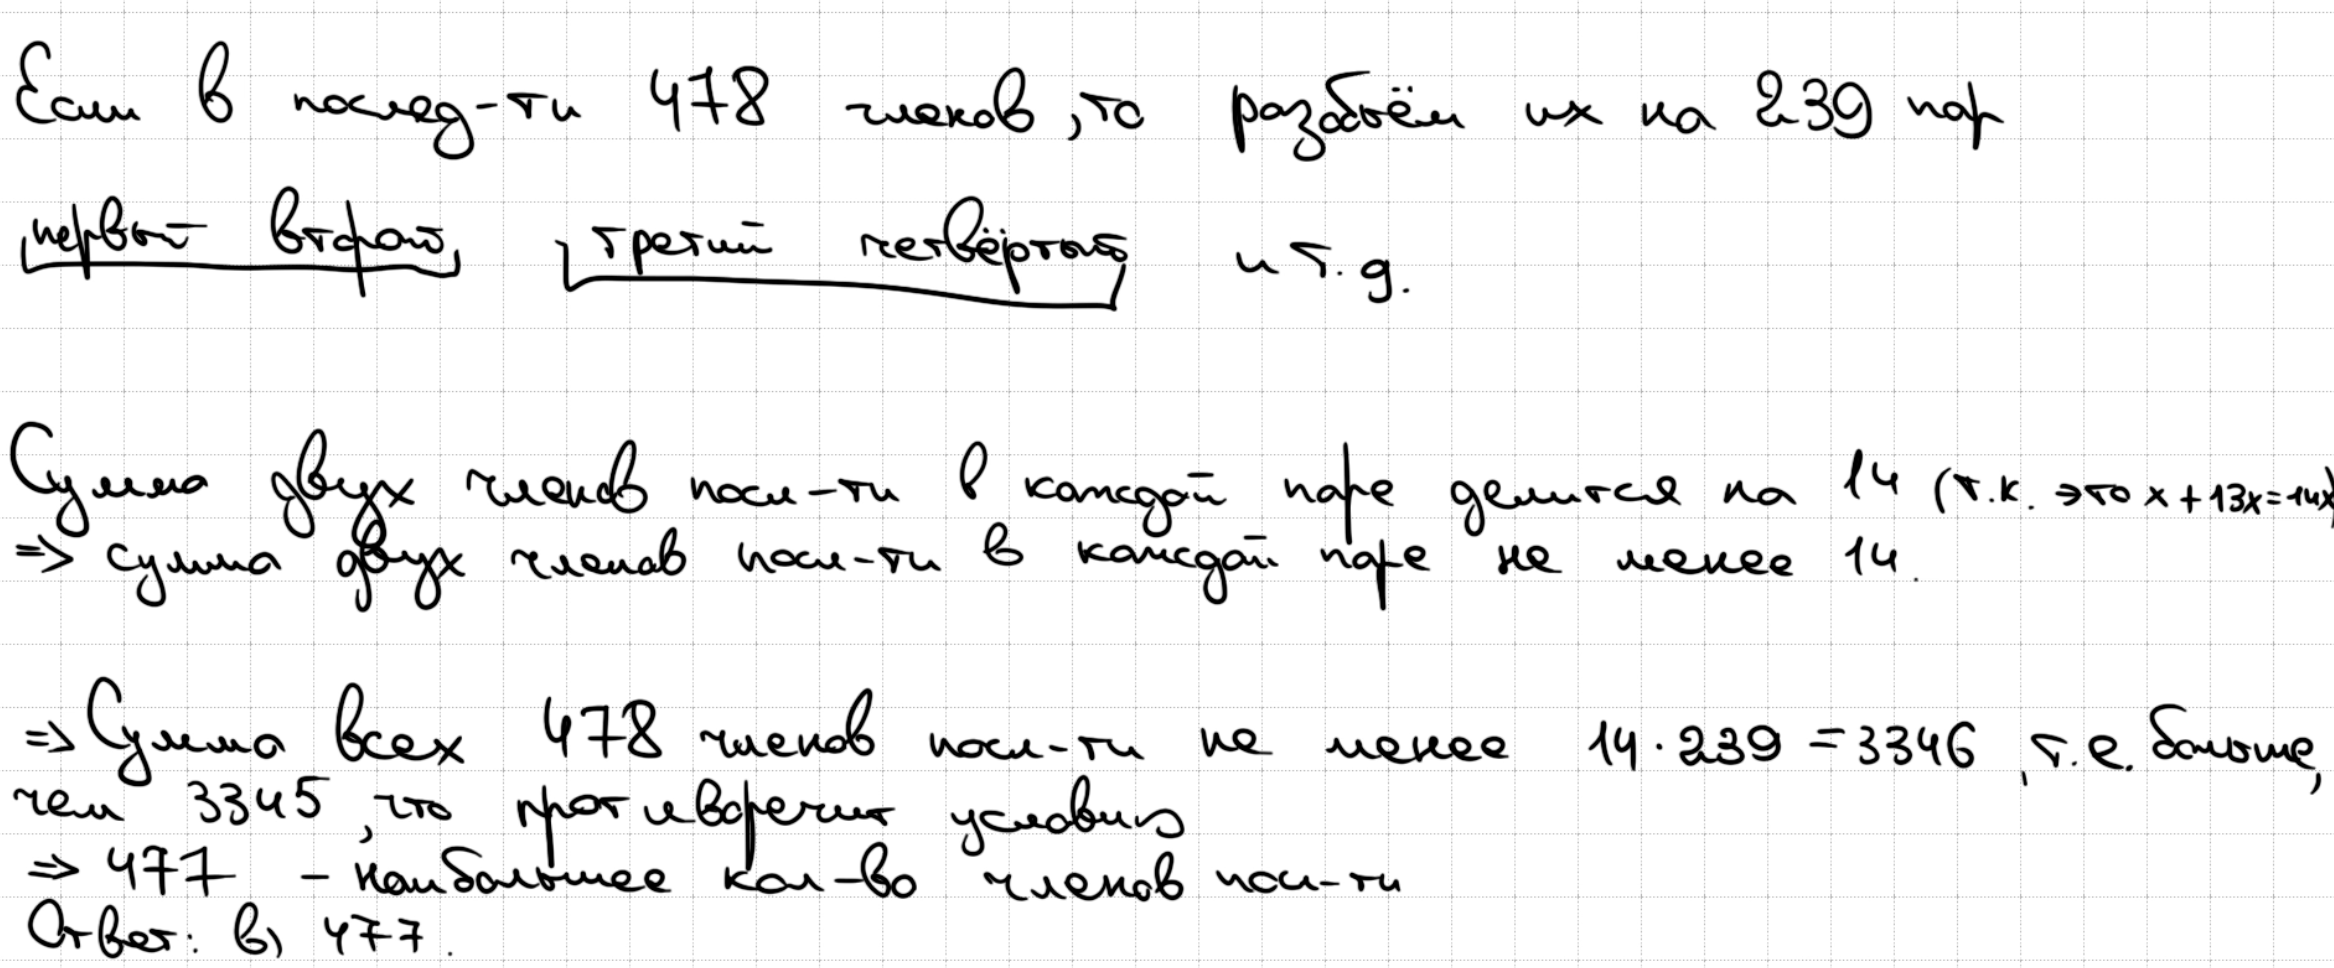 Если в послед-ти 478 членов, то разобьём их на 239 пар
первый второй третий четвёртый и т.д.
Сумма двух членов посл-ти в каждой паре делится на 14 (т.к. это x + 13x = 14x)
=> сумма двух членов посл-ти в каждой паре не менее 14.
=> Сумма всех 478 членов посл-ти не менее 14 · 239 = 3346, т.е. больше,
чем 3345, что противоречит условию
=> 477 - наибольшее кол-во членов посл-ти
Ответ: в) 477.